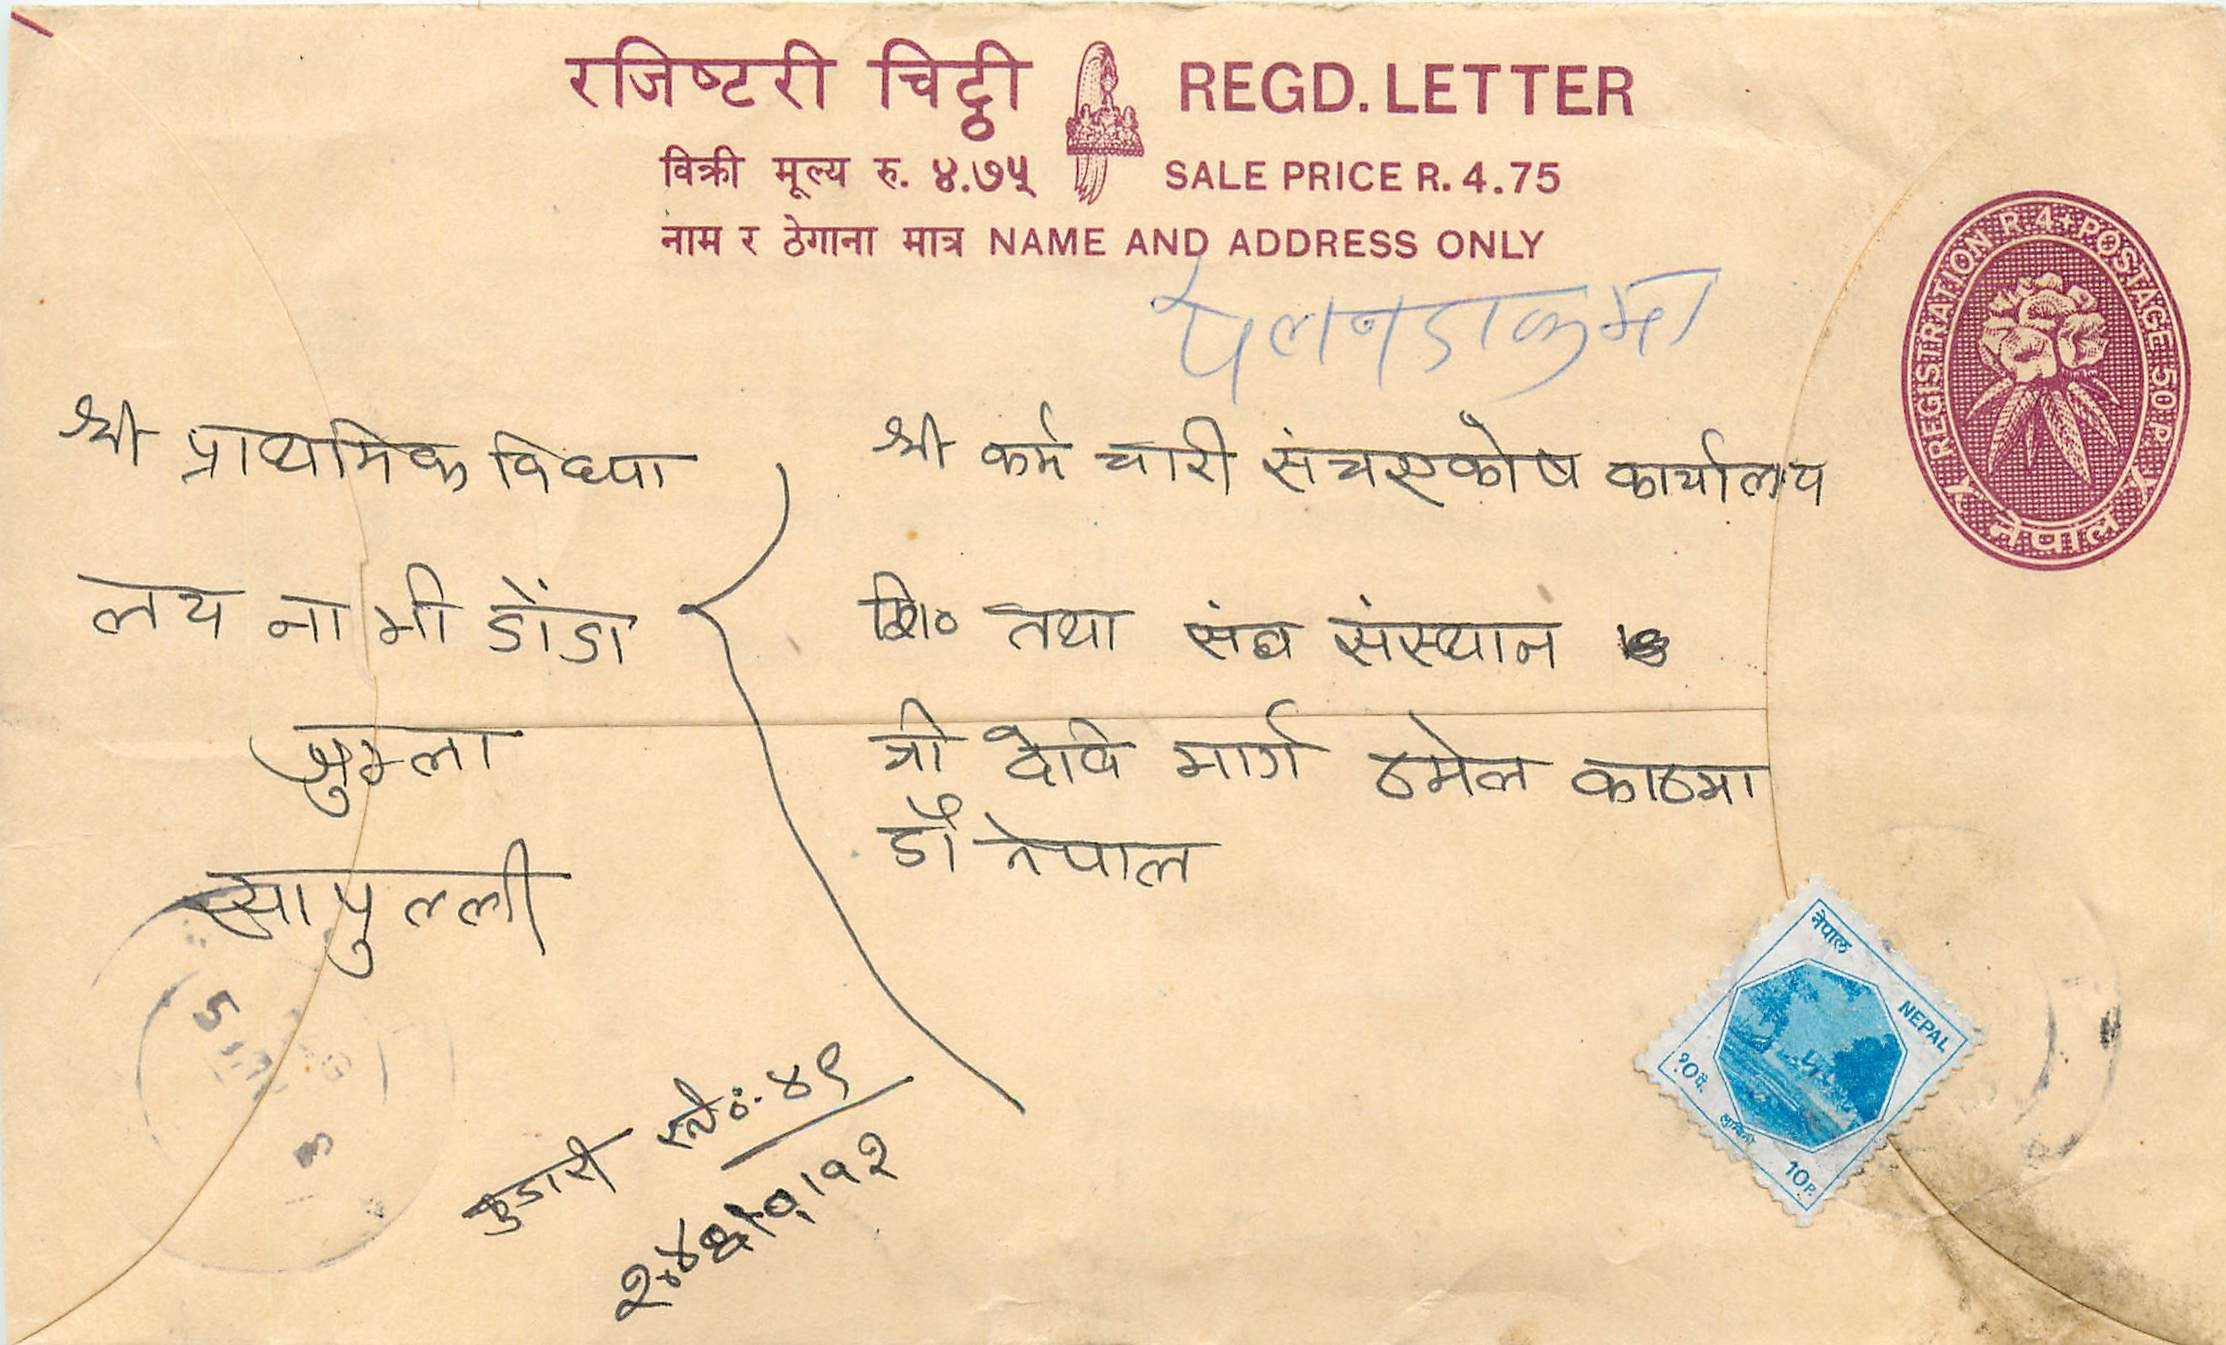 रजिष्टरी चिट्ठी REGD. LETTER
विक्री मूल्य रु. ४.७५ SALE PRICE R. 4.75
नाम र ठेगाना मात्र NAME AND ADDRESS ONLY
REGISTRATION R.4+POSTAGE 50 P.
नेपाल
श्री प्राथमिक विध्या
लय ना भी डाँडा
जुम्ला
पुलली
श्री कर्म चारी संचएकोष कार्यालय
शि० तथा संघ संस्थान
त्री देवि मार्ग ठमेल काठमा
डौ नेपाल
नेपाल
NEPAL
१० पै.
लुम्बिनी
10 P.
कुडारी ४९